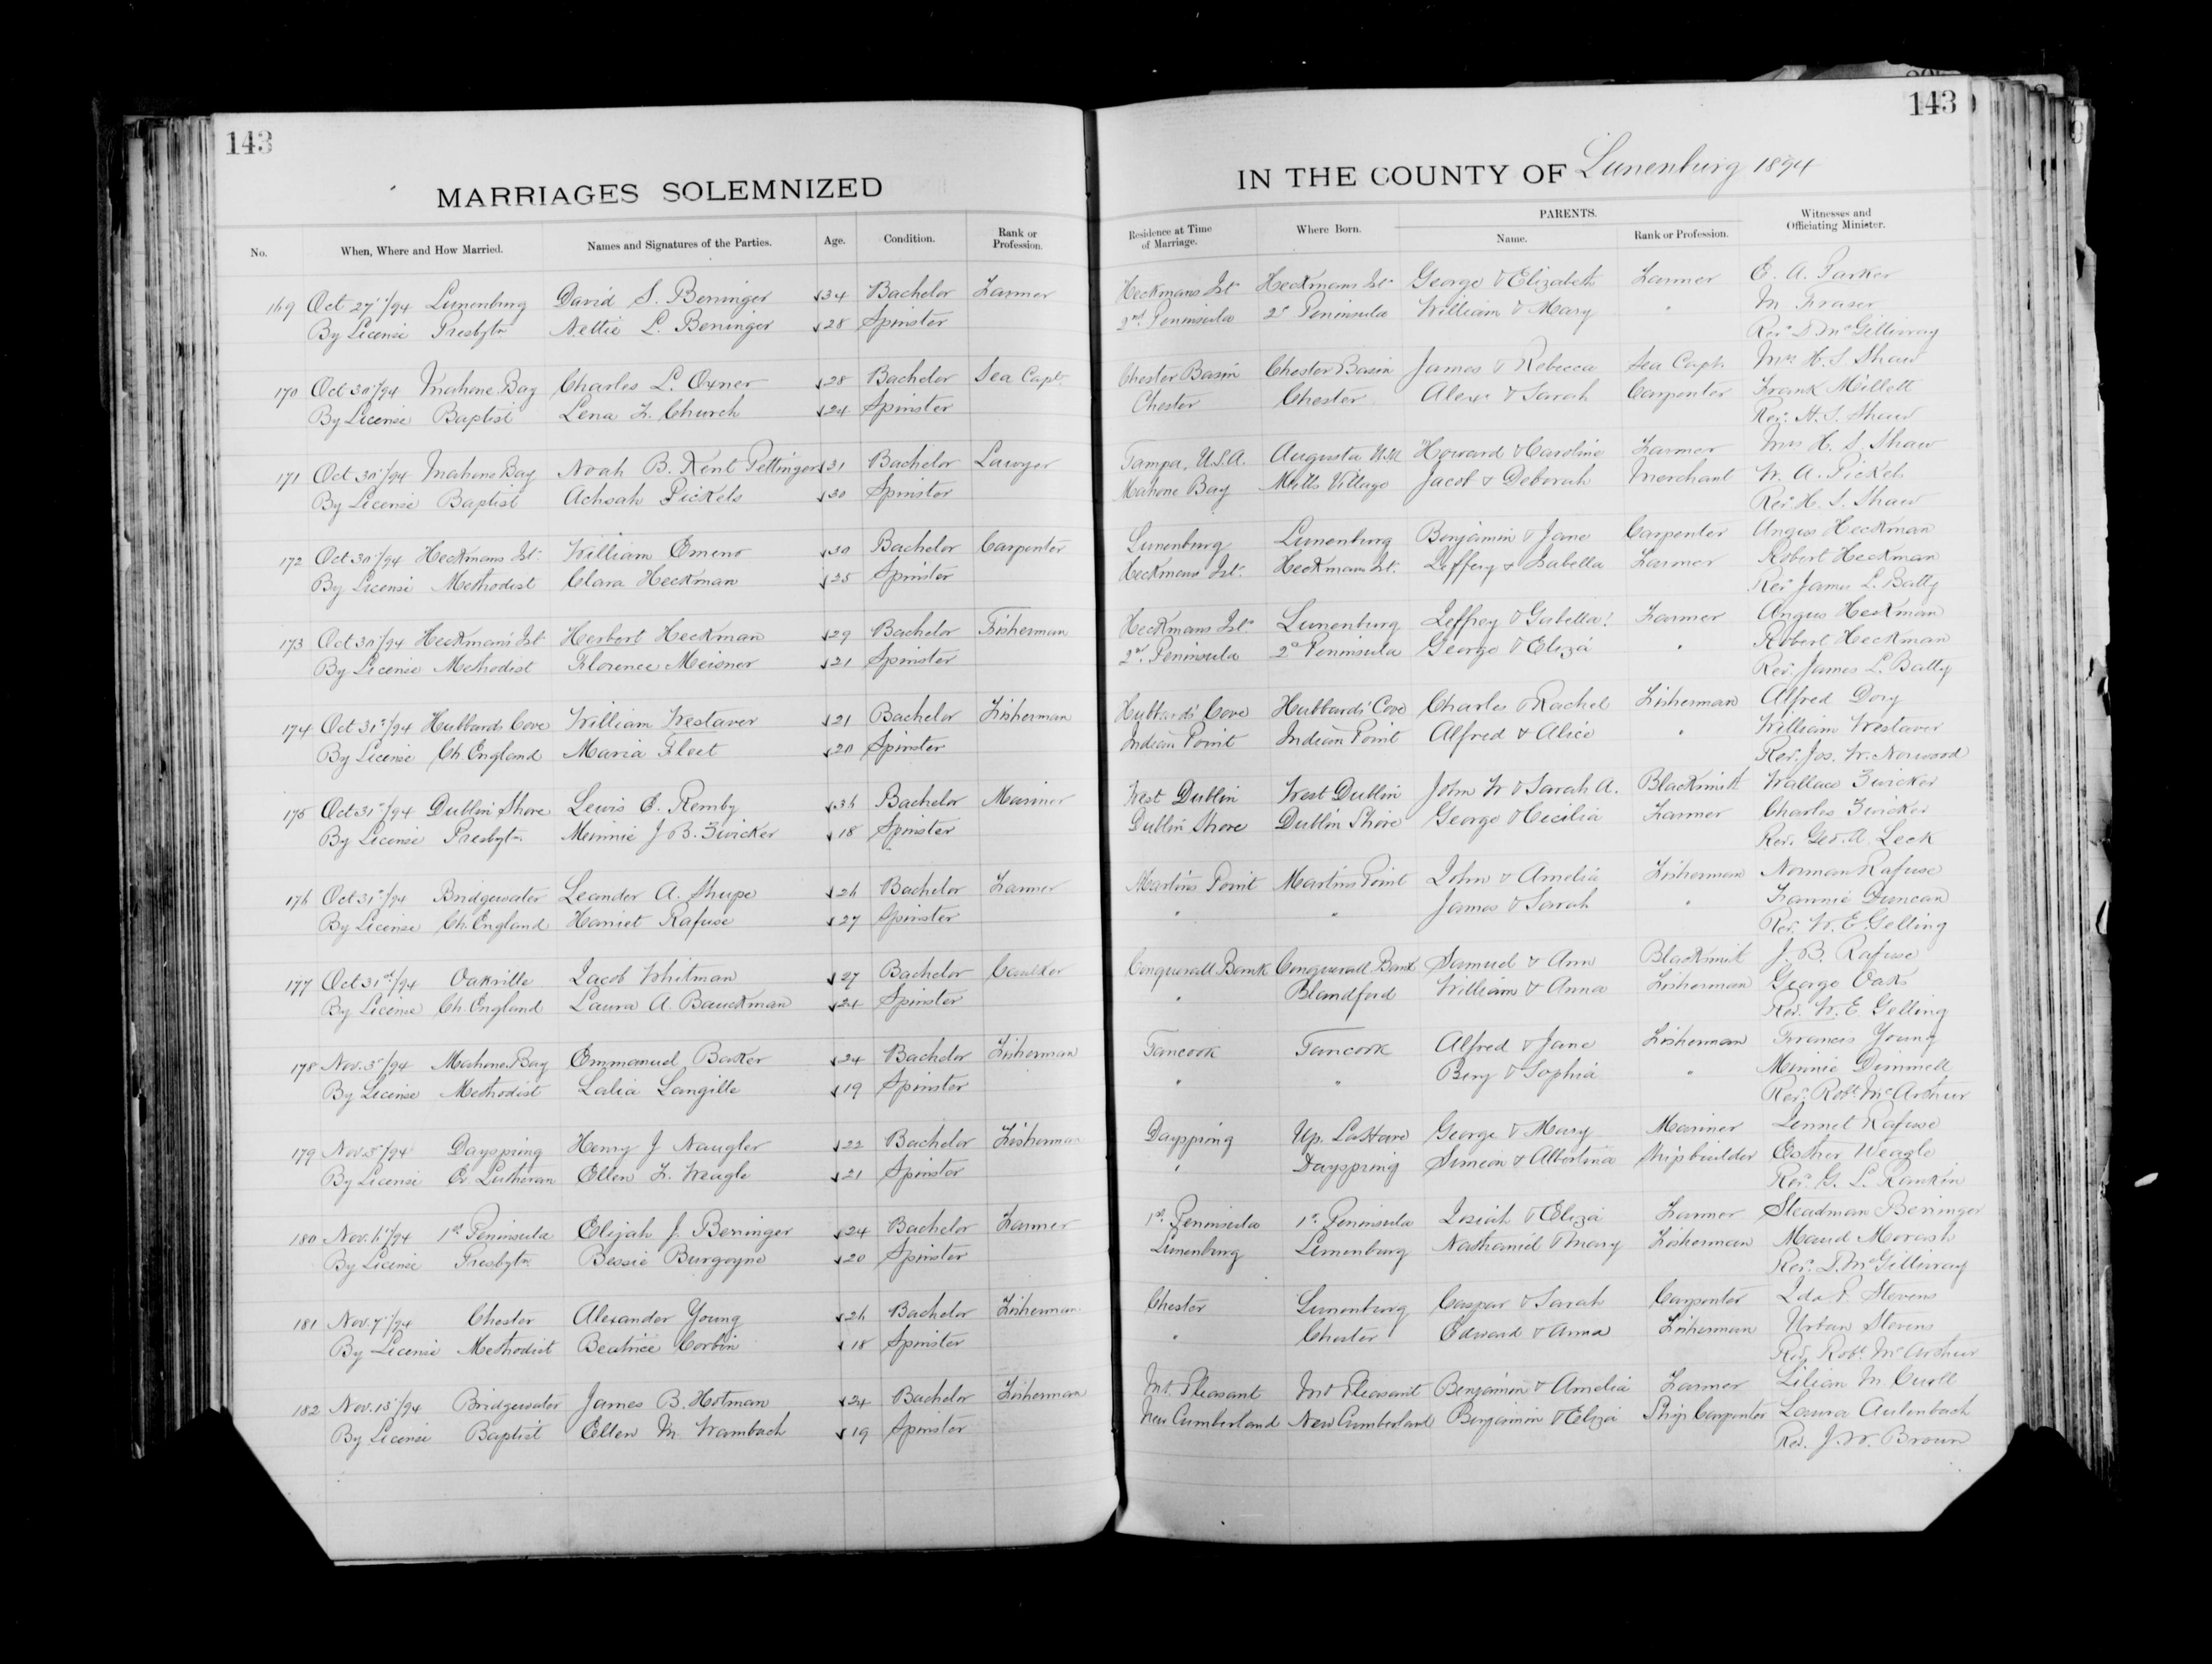 143
143
MARRIAGES SOLEMNIZED
IN THE COUNTY OF Lunenburg 1894
No. When, Where and How Married. Names and Signatures of the Parties. Age. Condition. Rank or Profession. Residence at Time of Marriage. Where Born. PARENTS. Name. Rank or Profession. Witnesses and Officiating Minister.
169 Oct 27/94 Lunenburg David S. Beringer 34 Bachelor Farmer Heckmans Isl. Heckmans Isl. George & Elizabeth Farmer E. A. Parker
By License Presbytn Nettie L. Beringer 28 Spinster 2nd Peninsula 2d Peninsula William & Mary " M Fraser
Rev. D McGillivray
170 Oct 30/94 Mahone Bay Charles L. Oxner 28 Bachelor Sea Capt. Chester Basin Chester Basin James & Rebecca Sea Capt. Mrs H. S. Shaw
By License Baptist Lena F. Church 24 Spinster Chester Chester Alexr & Sarah Carpenter Frank Millett
Rev. H. S. Shaw
171 Oct 30/94 Mahone Bay Noah B. Kent Pettinger 31 Bachelor Lawyer Tampa, U.S.A. Augusta U.S.A Howard & Caroline Farmer Mrs H. S. Shaw
By License Baptist Achsah Pickels 30 Spinster Mahone Bay Mills Village Jacob & Deborah Merchant W. A. Pickels
Rev. H. S. Shaw
172 Oct 30/94 Heckmans Isl. William Emeno 30 Bachelor Carpenter Lunenburg Lunenburg Benjamin & Jane Carpenter Angus Heckman
By License Methodist Clara Heckman 25 Spinster Heckmans Isl. Heckmans Isl. Jeffery & Isabella Farmer Robert Heckman
Rev James L. Batty
173 Oct 30/94 Heckman's Isl Herbert Heckman 29 Bachelor Fisherman Heckmans Isl. Lunenburg Jeffrey & Isabella Farmer Angus Heckman
By License Methodist Florence Meisner 21 Spinster 2nd Peninsula 2d Peninsula George & Eliza " Robert Heckman
Rev. James L. Batty
174 Oct 31st/94 Hubbards Cove William Westaver 21 Bachelor Fisherman Hubbards' Cove Hubbards' Cove Charles & Rachel Fisherman Alfred Dory
By License Ch. England Maria Fleet 20 Spinster Indian Point Indian Point Alfred & Alice " William Westaver
Rev. Jos. W. Norwood
175 Oct 31st/94 Dublin Shore Lewis E. Remby 36 Bachelor Mariner West Dublin West Dublin John W & Sarah A. Blacksmith Wallace Zwicker
By License Presbytn. Minnie J B. Zwicker 18 Spinster Dublin Shore Dublin Shore George & Cecilia Farmer Charles Zwicker
Rev. Geo. A. Leck
176 Oct 31st/94 Bridgewater Leander A. Shupe 26 Bachelor Farmer Martins Point Martins Point John & Amelia Fisherman Norman Rafuse
By License Ch. England Harriet Rafuse 27 Spinster " " James & Sarah " Fannie Duncan
Rev. W. E. Gelling
177 Oct 31st/94 Oakville Jacob Whitman 27 Bachelor Caulker Conquerall Bank Conquerall Bank Samuel & Ann Blacksmith J. B. Rafuse
By License Ch. England Laura A. Bauckman 24 Spinster " Blandford William & Anna Fisherman George Oaks
Rev. W. E Gelling
178 Nov. 3/94 Mahone Bay Emmanuel Baker 24 Bachelor Fisherman Tancook Tancook Alfred & Jane Fisherman Francis Young
By License Methodist Lalia Langille 19 Spinster " " Benj & Sophia " Minnie Dimmell
Rev. Robt. McArthur
179 Nov. 5/94 Dayspring Henry J Naugler 22 Bachelor Fisherman Dayspring Up. LaHave George & Mary Mariner Lennet Rafuse
By License Ev. Lutheran Ellen F. Weagle 21 Spinster " Dayspring Simeon & Albertina Shipbuilder Esther Weagle
Rev. G. L. Rankin
180 Nov. 6/94 1st Peninsula Elijah J. Beringer 24 Bachelor Farmer 1st. Peninsula 1st Peninsula Josiah & Eliza Farmer Steadman Beringer
By License Presbytn Bessie Burgoyne 20 Spinster Lunenburg Lunenburg Nathaniel & Mary Fisherman Maud Morash
Rev. D. McGillivray
181 Nov. 7/94 Chester Alexander Young 26 Bachelor Fisherman Chester Lunenburg Caspar & Sarah Carpenter Ida P. Stevens
By License Methodist Beatrice Corbin 18 Spinster " Chester Edward & Anna Fisherman Urban Stevens
Rev. Robt. McArthur
182 Nov. 13/94 Bridgewater James B. Hotman 24 Bachelor Fisherman Mt. Pleasant Mt Pleasant Benjamin & Amelia Farmer Lilian M. Curll
By License Baptist Ellen M. Wambach 19 Spinster New Cumberland New Cumberland Benjamin & Eliza Ship Carpenter Laura Aulenbach
Rev. J. W. Brown